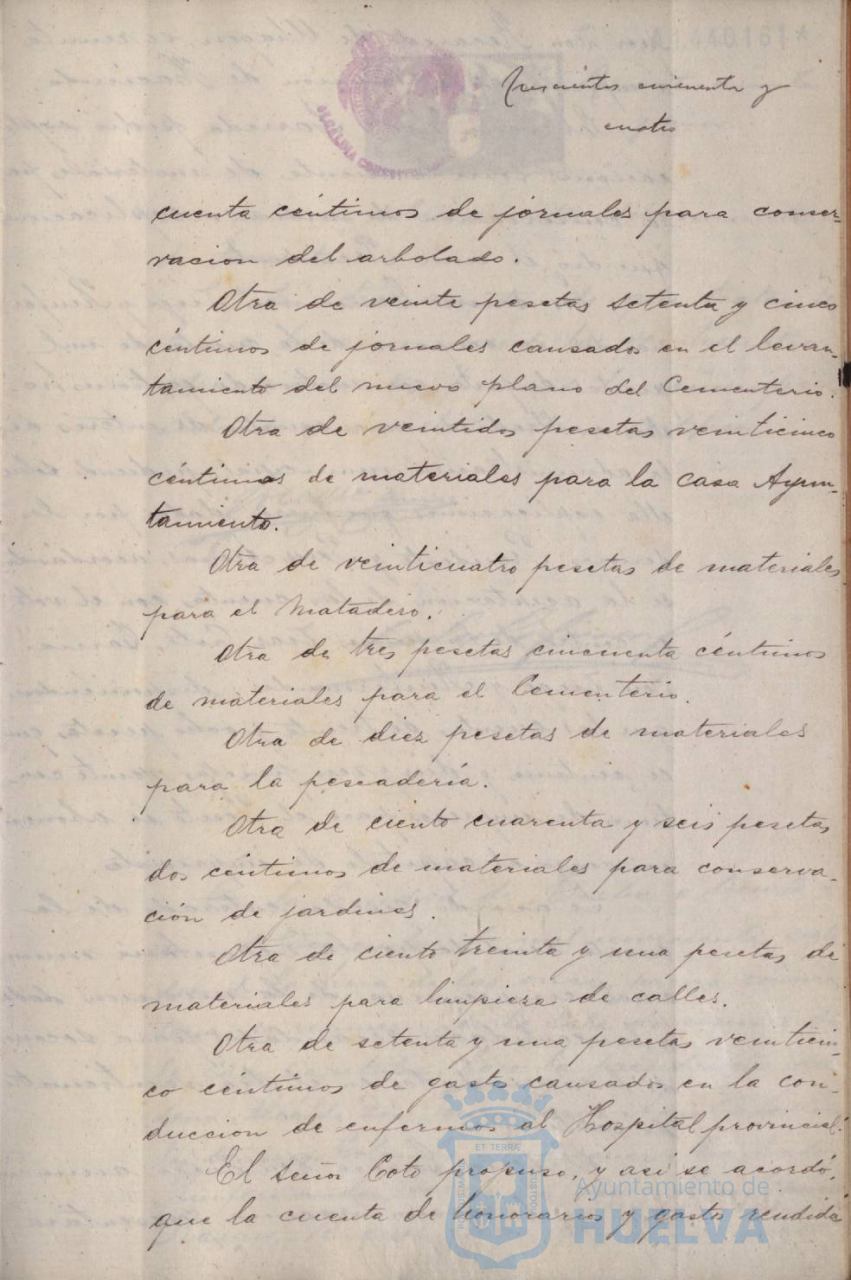 Trescientos cincuenta y
cuatro
cuenta céntimos de jornales para conser-
vacion del arbolado.
Otra de veinte pesetas setenta y cinco
céntimos de jornales causados en el levan-
tamiento del nuevo plano del Cementerio.
Otra de veintidos pesetas veinticinco
céntimos de materiales para la casa Ayun-
tamiento.
Otra de veinticuatro pesetas de materiales
para el Matadero.
Otra de tres pesetas cincuenta céntimos
de materiales para el Cementerio.
Otra de diez pesetas de materiales
para la pescadería.
Otra de ciento cuarenta y seis pesetas
dos céntimos de materiales para conserva-
ción de jardines.
Otra de ciento treinta y una pesetas de
materiales para limpieza de calles.
Otra de setenta y una pesetas veinticin-
co céntimos de gastos causados en la con-
duccion de enfermos al Hospital provincial.
El Señor Coto propuso, y asi se acordó,
que la cuenta de honorarios y gastos rendida
Ayuntamiento de
HUELVA